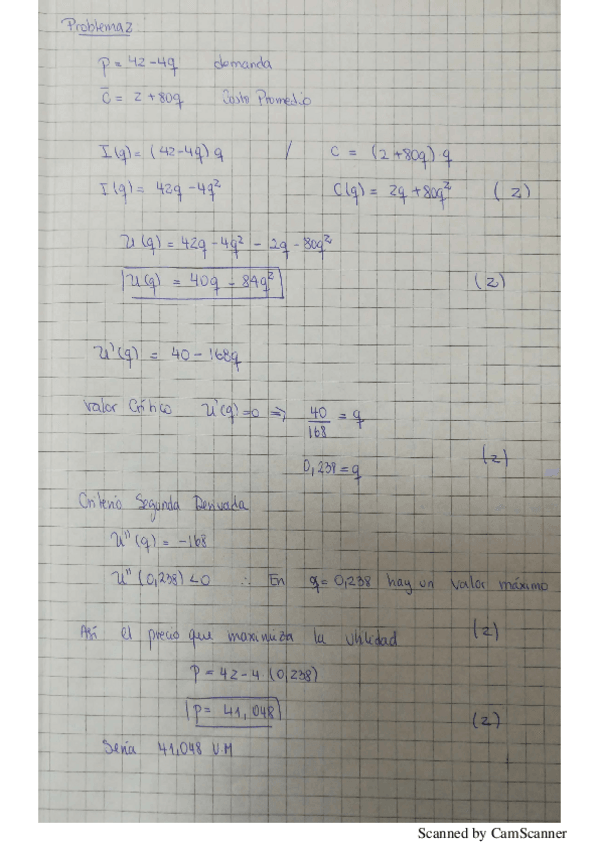 Problema 2
p = 42 - 4q demanda
C̅ = 2 + 80q Costo Promedio
I(q) = (42 - 4q) q / C = (2 + 80q) q
I(q) = 42q - 4q² C(q) = 2q + 80q² (2)
U(q) = 42q - 4q² - 2q - 80q²
U(q) = 40q - 84q² (2)
U'(q) = 40 - 168q
Valor Crítico U'(q) = 0 ⇒ 40/168 = q
0,238 = q (2)
Criterio Segunda Derivada
U''(q) = -168
U''(0,238) < 0 ∴ En q = 0,238 hay un valor máximo
Así el precio que maximiza la utilidad (2)
P = 42 - 4·(0,238)
P = 41,048 (2)
Sería 41,048 U.M
Scanned by CamScanner